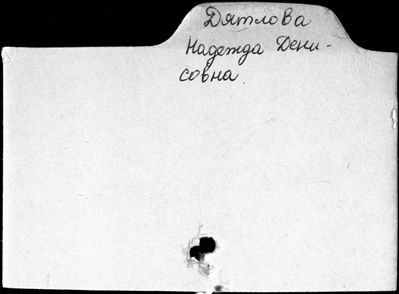 Дятлова
Надежда Дени-
совна.